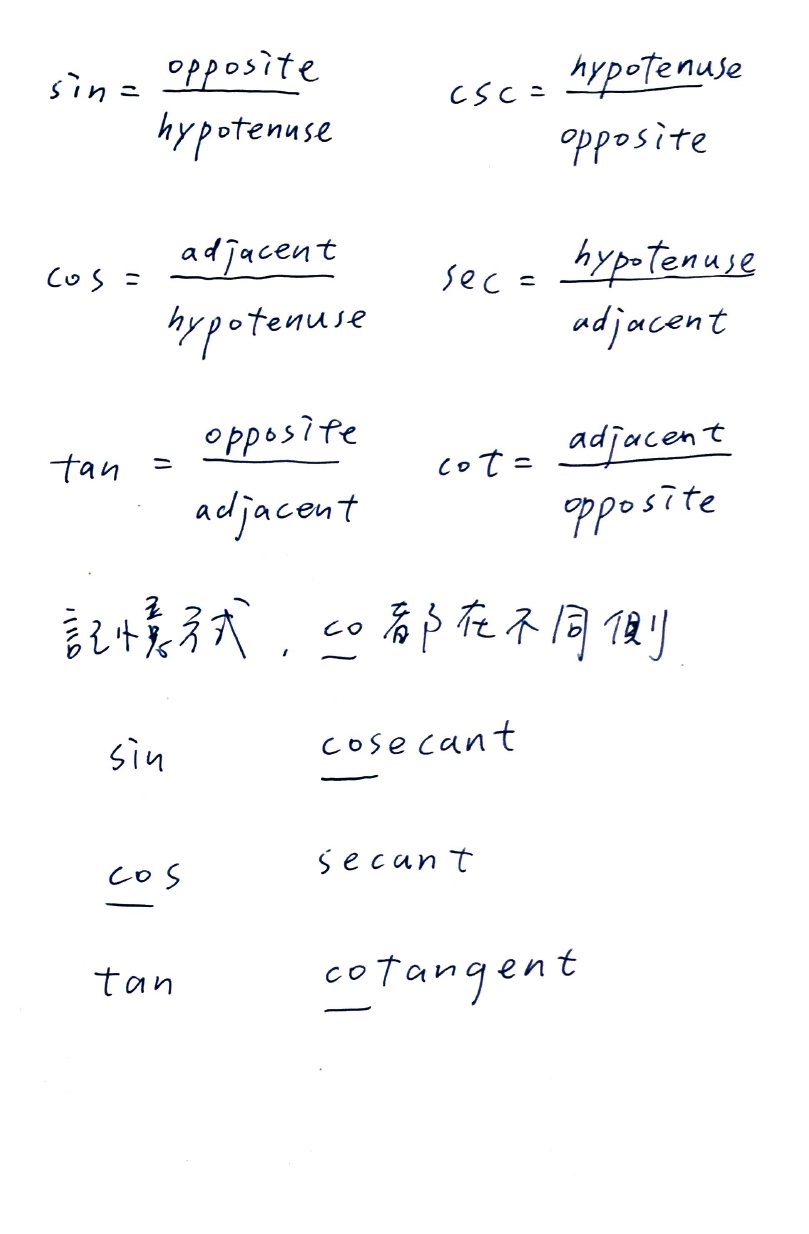 sin = opposite / hypotenuse    csc = hypotenuse / opposite
cos = adjacent / hypotenuse    sec = hypotenuse / adjacent
tan = opposite / adjacent    cot = adjacent / opposite
記憶方式，co 都在不同側
sin    cosecant
cos    secant
tan    cotangent